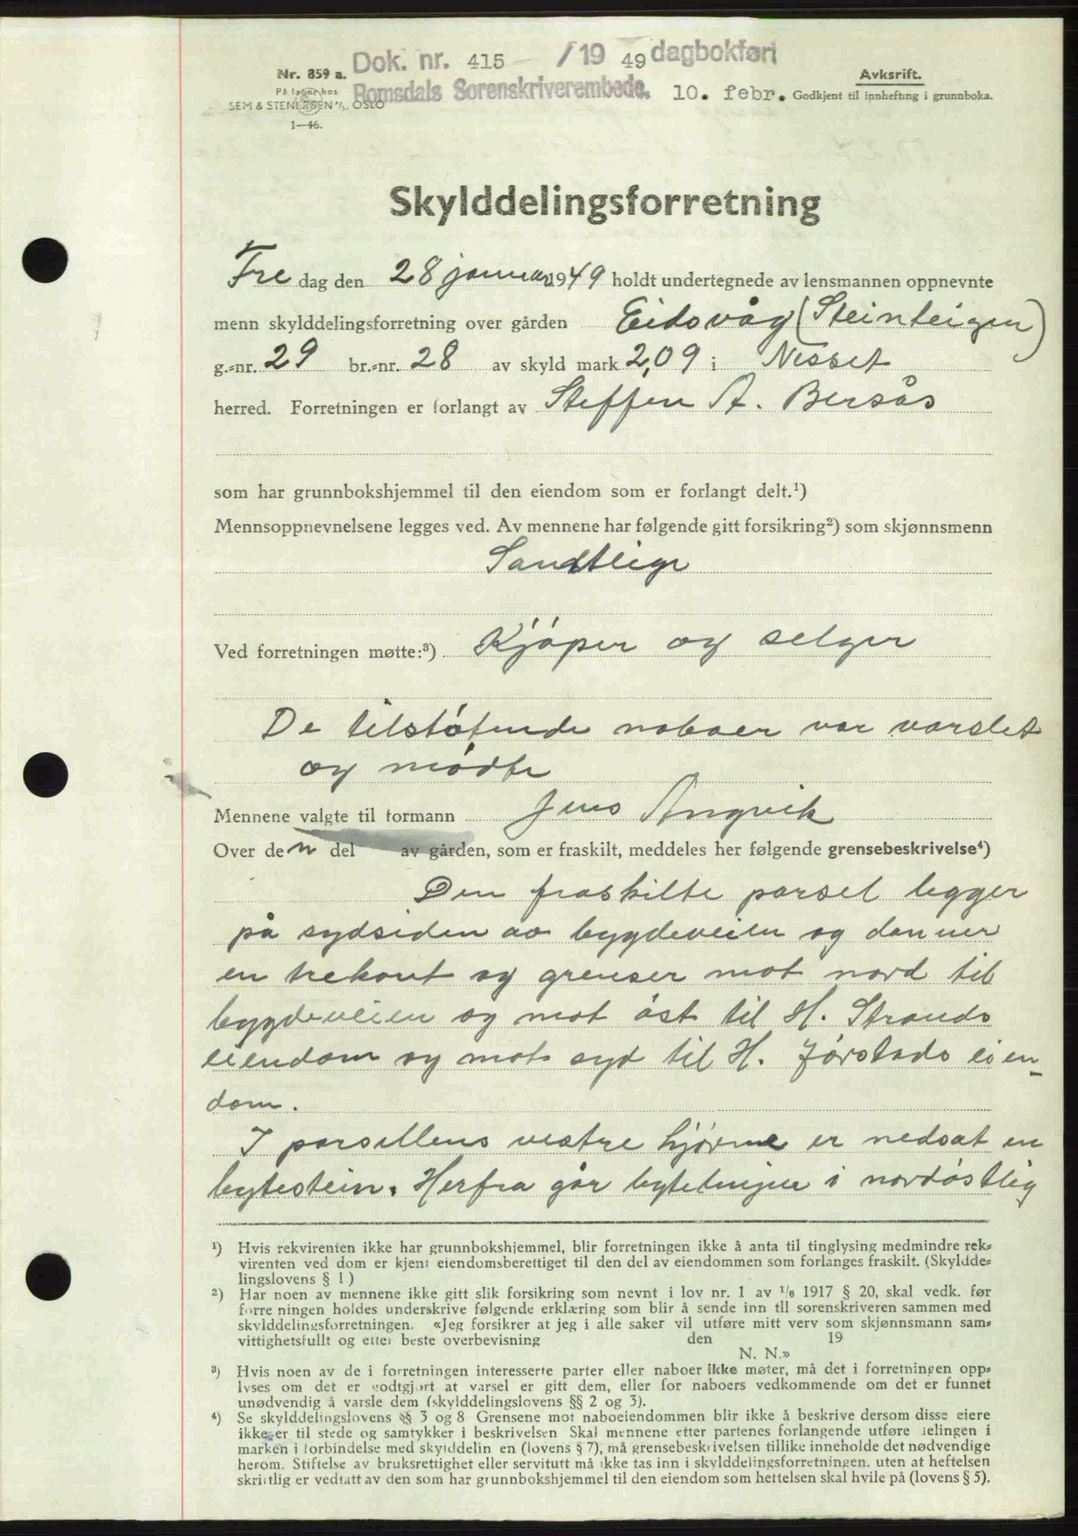 Dok. nr. 415 /1949 dagbokført
Romsdals Sorenskriverembede. 10. febr.
Nr. 859 a.
På lager hos
SEM & STENERSEN A/S, OSLO
1—46.
Avksrift.
Godkjent til innhefting i grunnboka.
Skylddelingsforretning
Fre dag den 28 januar 1949 holdt undertegnede av lensmannen oppnevnte
menn skylddelingsforretning over gården Eidsvåg (Steinteigen)
g.-nr. 29 br.-nr. 28 av skyld mark 2,09 i Nesset
herred. Forretningen er forlangt av Steffen A. Bersås
som har grunnbokshjemmel til den eiendom som er forlangt delt.¹)
Mennsoppnevnelsene legges ved. Av mennene har følgende gitt forsikring²) som skjønnsmenn
Samtlige
Ved forretningen møtte:³) Kjøper og selger
De tilstøtende naboer var varslet
og mødte
Mennene valgte til formann Jens Angvik
Over den del av gården, som er fraskilt, meddeles her følgende grensebeskrivelse⁴)
Den fraskilte parsel ligger
på sydsiden av bygdeveien og danner
en trekant og grenser mot nord til
bygdeveien og mot øst til H. Strands
eiendom og mot syd til H. Jørstads eien-
dom.
I parsellens vestre hjørne er nedsat en
bytestein. Herfra går bytelinjen i nordøstlig
¹) Hvis rekvirenten ikke har grunnbokshjemmel, blir forretningen ikke å anta til tinglysing medmindre rek-
virenten ved dom er kjent eiendomsberettiget til den del av eiendommen som forlanges fraskilt. (Skyldde-
lingslovens § 1)
²) Har noen av mennene ikke gitt slik forsikring som nevnt i lov nr. 1 av 1/6 1917 § 20, skal vedk. før
forretningen holdes underskrive følgende erklæring som blir å sende inn til sorenskriveren sammen med
skylddelingsforretningen. «Jeg forsikrer at jeg i alle saker vil utføre mitt verv som skjønnsmann sam-
vittighetsfullt og etter beste overbevisning den 19
N. N.»
³) Hvis noen av de i forretningen interesserte parter eller naboer ikke møter, må det i forretningen opp-
lyses om det er godtgjort at varsel er gitt dem, eller for naboers vedkommende om det er funnet
unødvendig å varsle dem (skylddelingslovens §§ 2 og 3).
⁴) Se skylddelingslovens §§ 3 og 8 Grensene mot naboeiendommen blir ikke å beskrive dersom disse eiere
ikke er til stede og samtykker i beskrivelsen Skal mennene etter partenes forlangende utføre delingen i
marken i forbindelse med skylddelingen (lovens § 7), må grensebeskrivelsen tillike inneholde det nødvendige
herom. Stiftelse av bruksrettighet eller servitutt må ikke tas inn i skylddelingsforretningen, uten at heftelsen
skriftlig er vedtatt av den som har grunnbokshjemmel til den eiendom som heftelsen skal hvile på (lovens § 5).